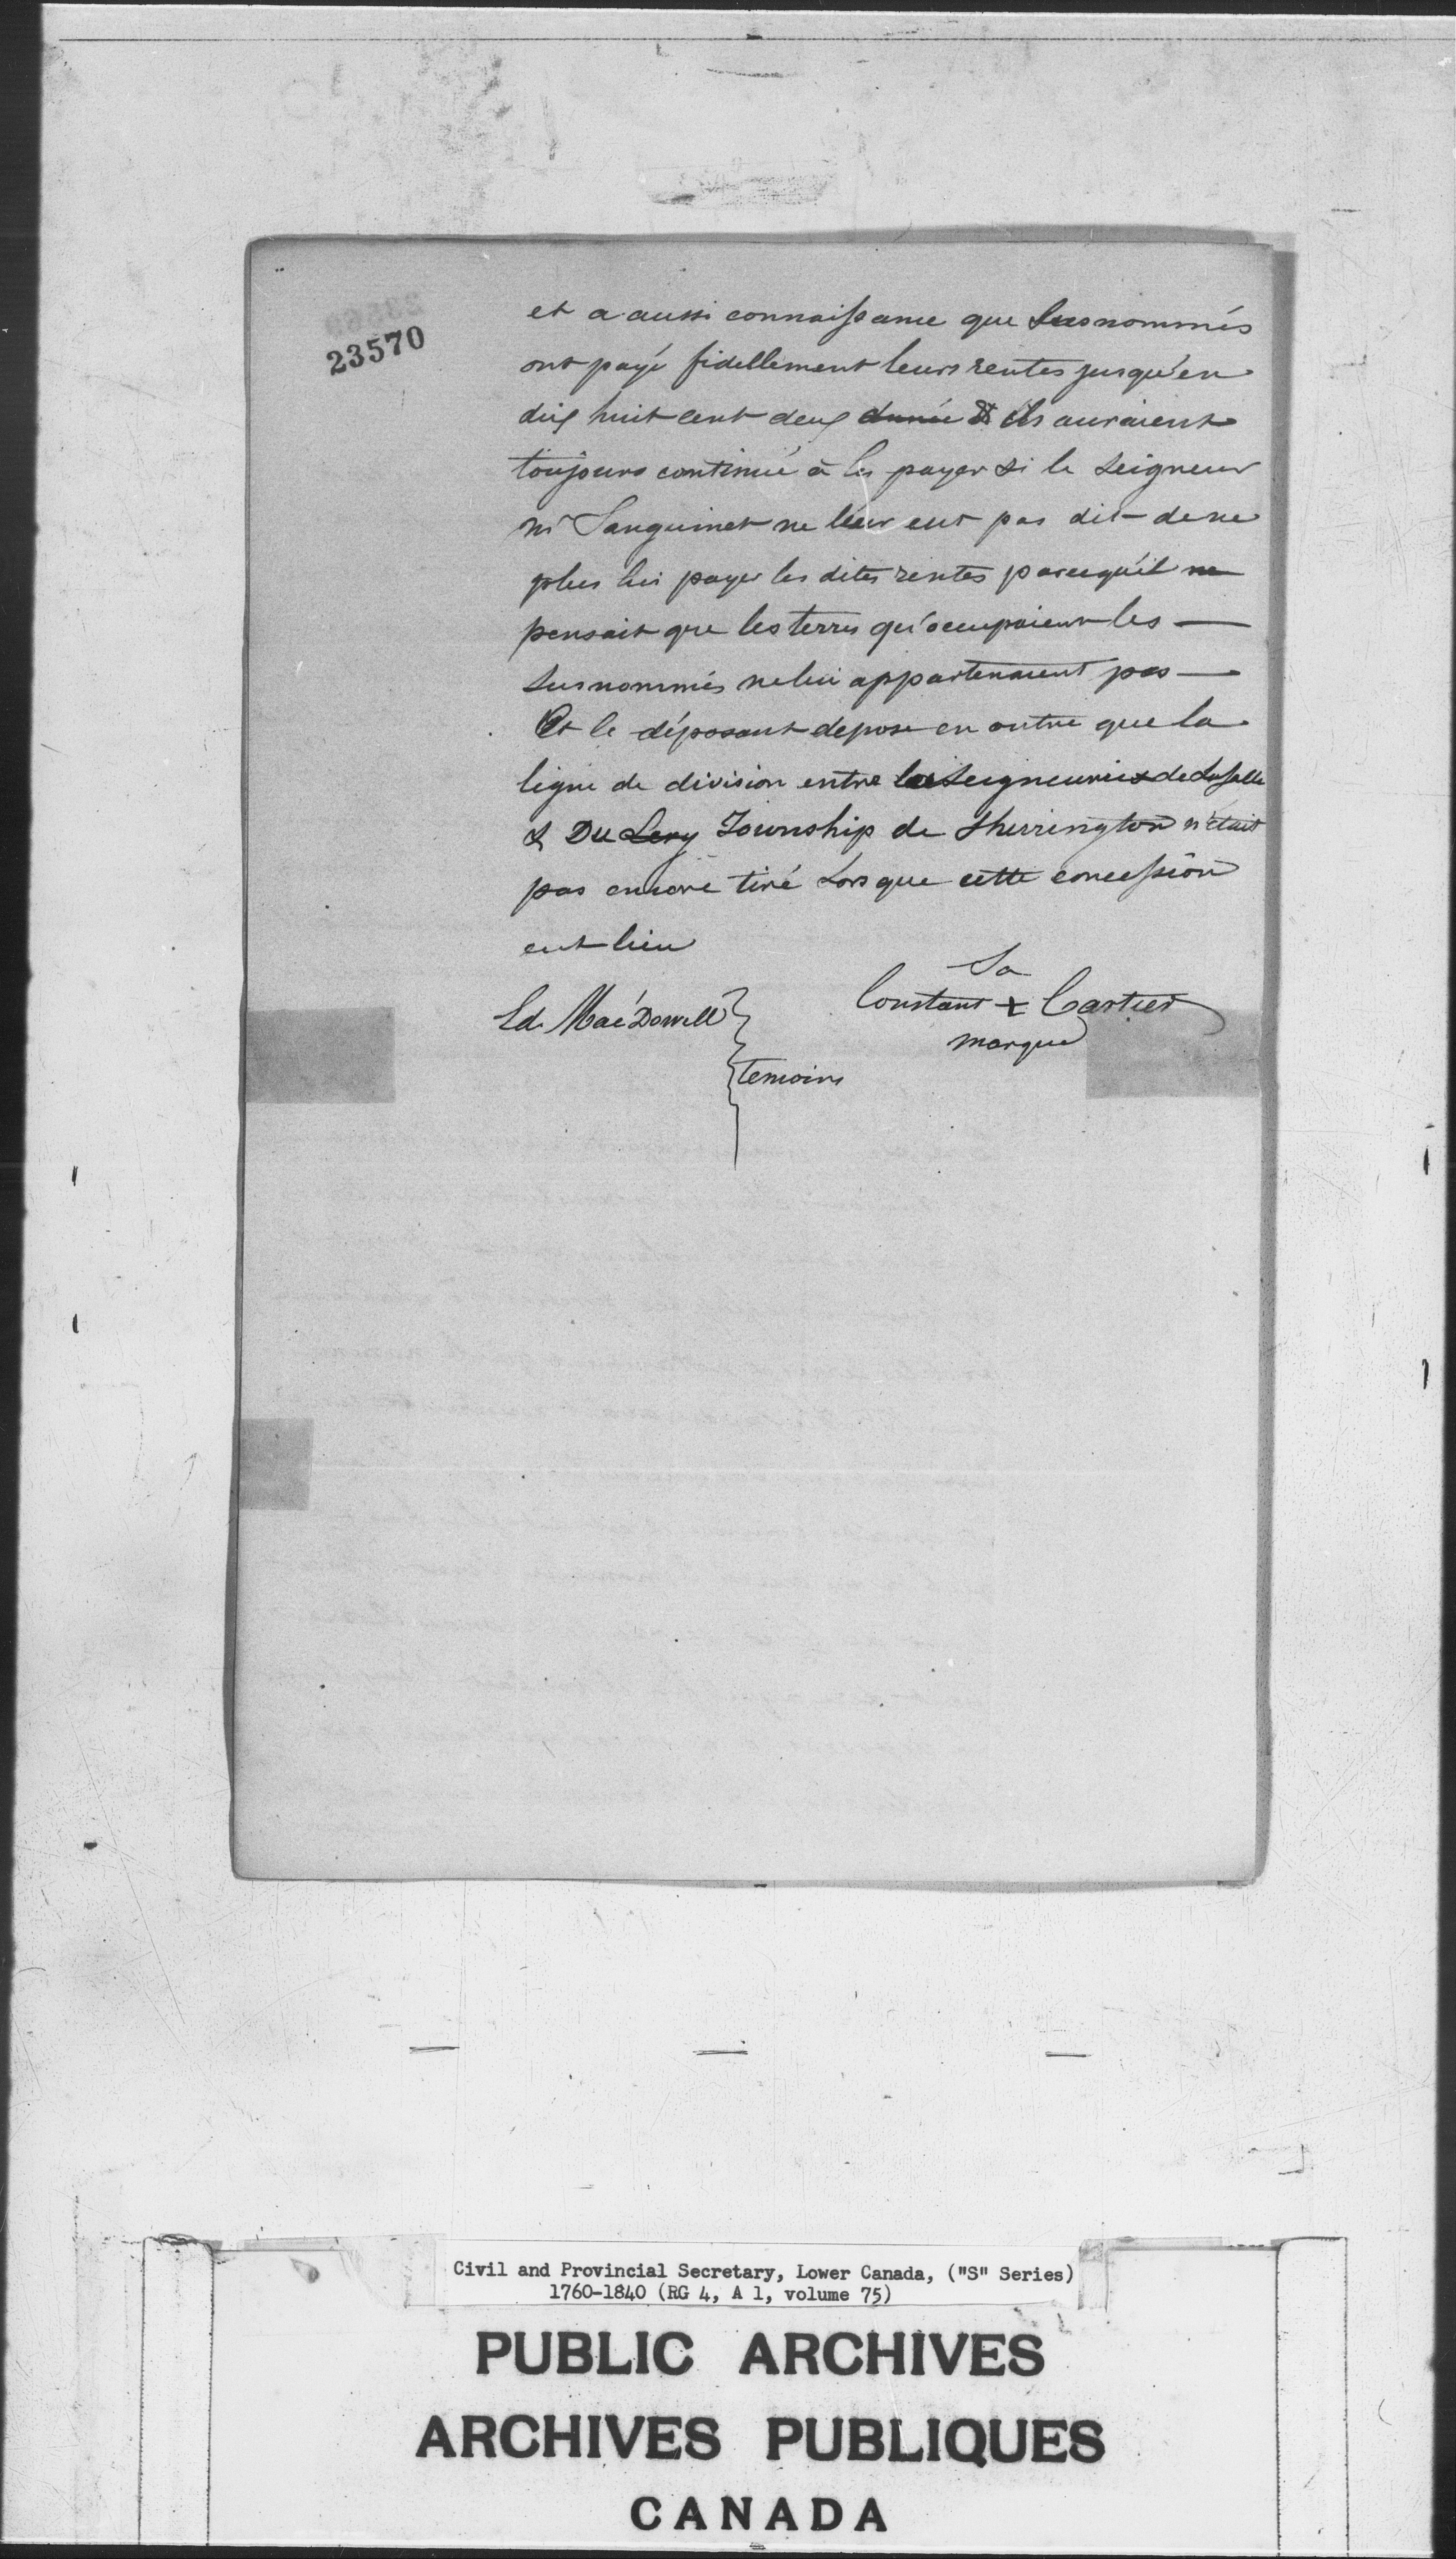 23570
et a aussi connaissance que Susnommés
ont payé fidellement leurs rentes jusqu'en
dix huit cent deux & ils auraient
toujours continué à les payer si le Seigneur
Mr Sanguinet ne leur eut pas dit de ne
plus lui payer les dites rentes parcequ'il ne
pensait que les terres qu'occupaient les —
Susnommés ne lui appartenaient pas —
Et le déposant depose en outre que la
ligne de division entre la Seigneurie de Lasalle
& Du Lery Township de Sherrington n'était
pas encore tiré Lors que cette concession
eut lieu
Sa
Ed. MacDowell Constant + Cartier
marque
temoins
Civil and Provincial Secretary, Lower Canada, ("S" Series)
1760-1840 (RG 4, A 1, volume 75)
PUBLIC ARCHIVES
ARCHIVES PUBLIQUES
CANADA